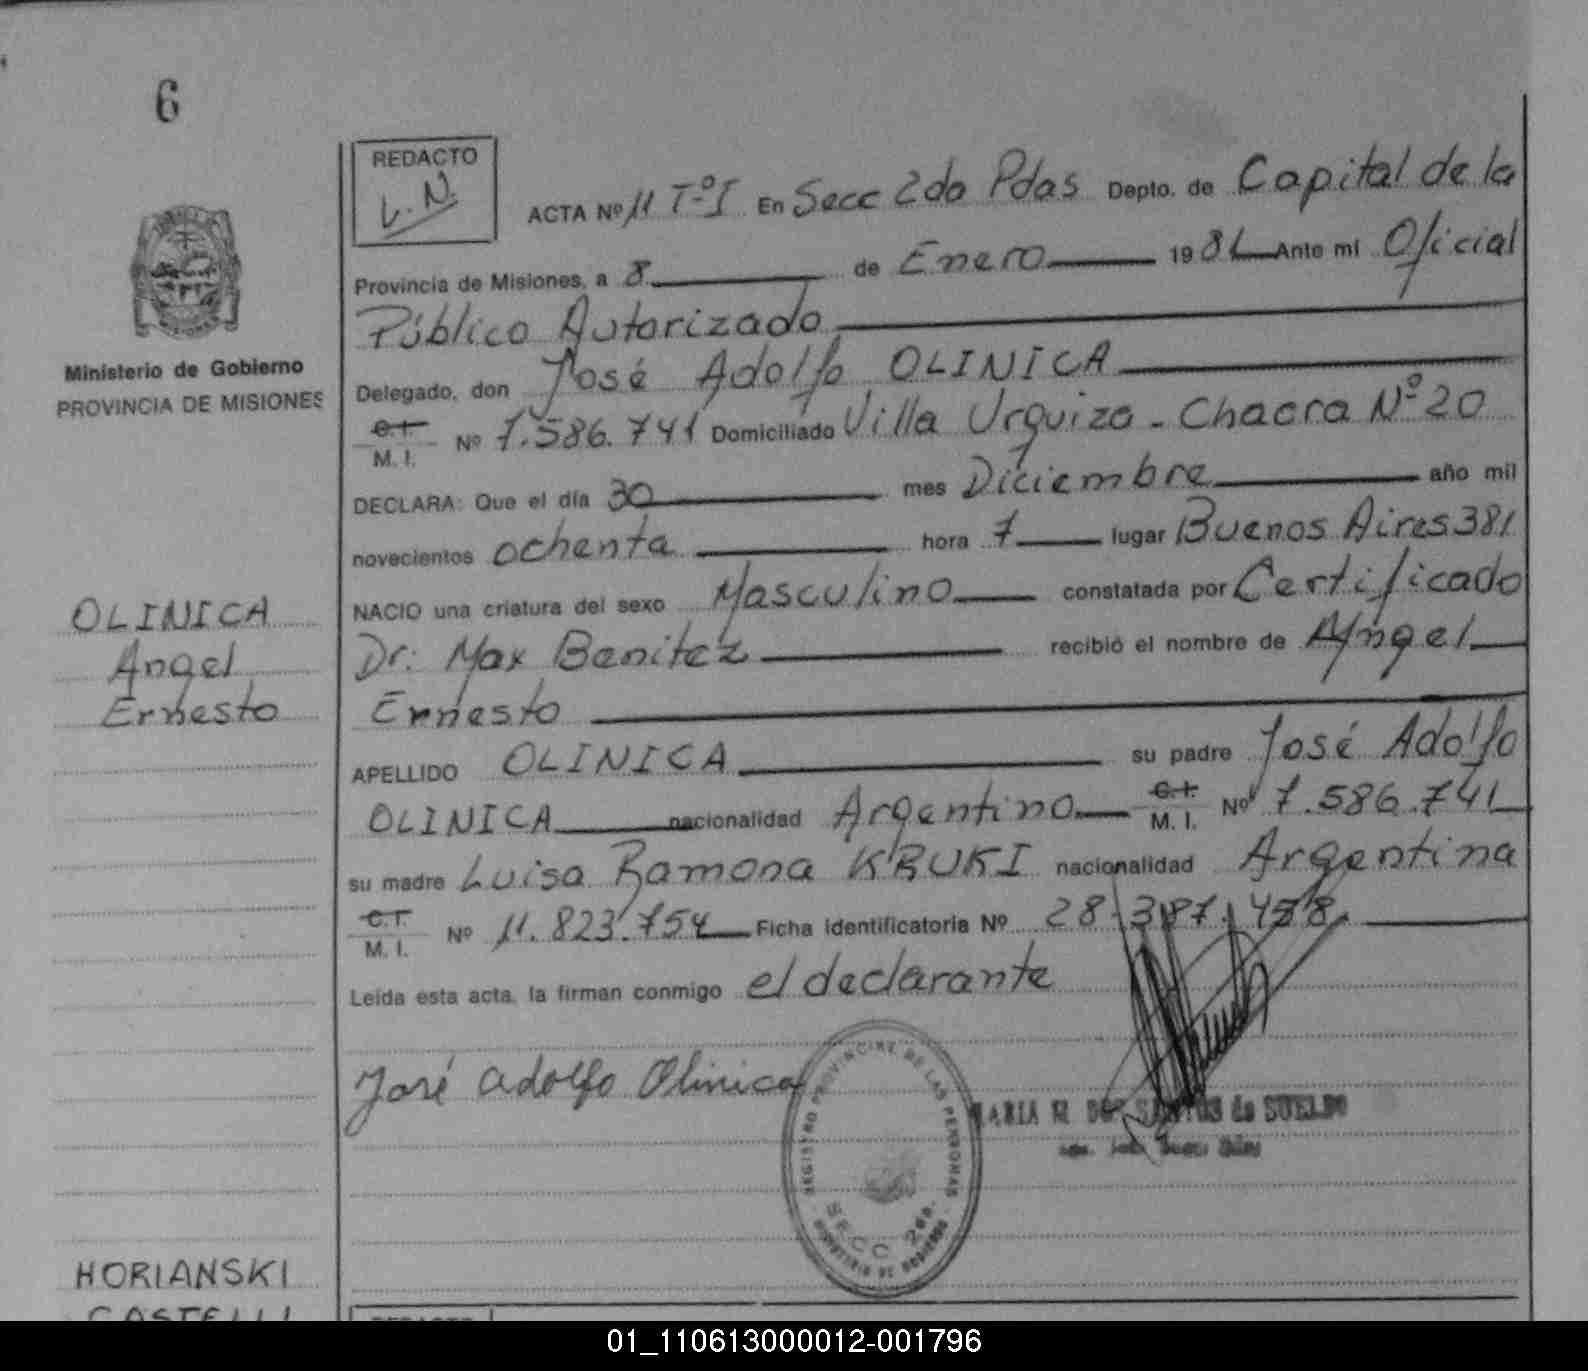 6
REDACTO
L. N.
ACTA Nº 11 Tº I En Secc 2da Pdas Depto. de Capital de la
Provincia de Misiones, a 8 de Enero 1981 Ante mi Oficial
Público Autorizado
Delegado, don José Adolfo OLINICA
C.I. M. I. Nº 7.586.741 Domiciliado Villa Urquiza - Chacra Nº 20
DECLARA: Que el día 30 mes Diciembre año mil
novecientos ochenta hora 7 lugar Buenos Aires 381
NACIO una criatura del sexo Masculino constatada por Certificado
Dr. Max Benitez recibió el nombre de Angel
Ernesto
APELLIDO OLINICA su padre José Adolfo
OLINICA nacionalidad Argentino C.I. M. I. Nº 7.586.741
su madre Luisa Ramona KRUKI nacionalidad Argentina
C.I. M. I. Nº 11.823.754 Ficha identificatoria Nº 28.387.458
Leída esta acta, la firman conmigo el declarante
José Adolfo Olinica
REGISTRO PROVINCIAL DE LAS PERSONAS
SECC 2da.
MINISTERIO DE GOBIERNO
MARIA M DOS SANTOS de SUELDO
Ministerio de Gobierno
PROVINCIA DE MISIONES
OLINICA
Angel
Ernesto
HORIANSKI
CASTELLI
REDACTO
01_110613000012-001796